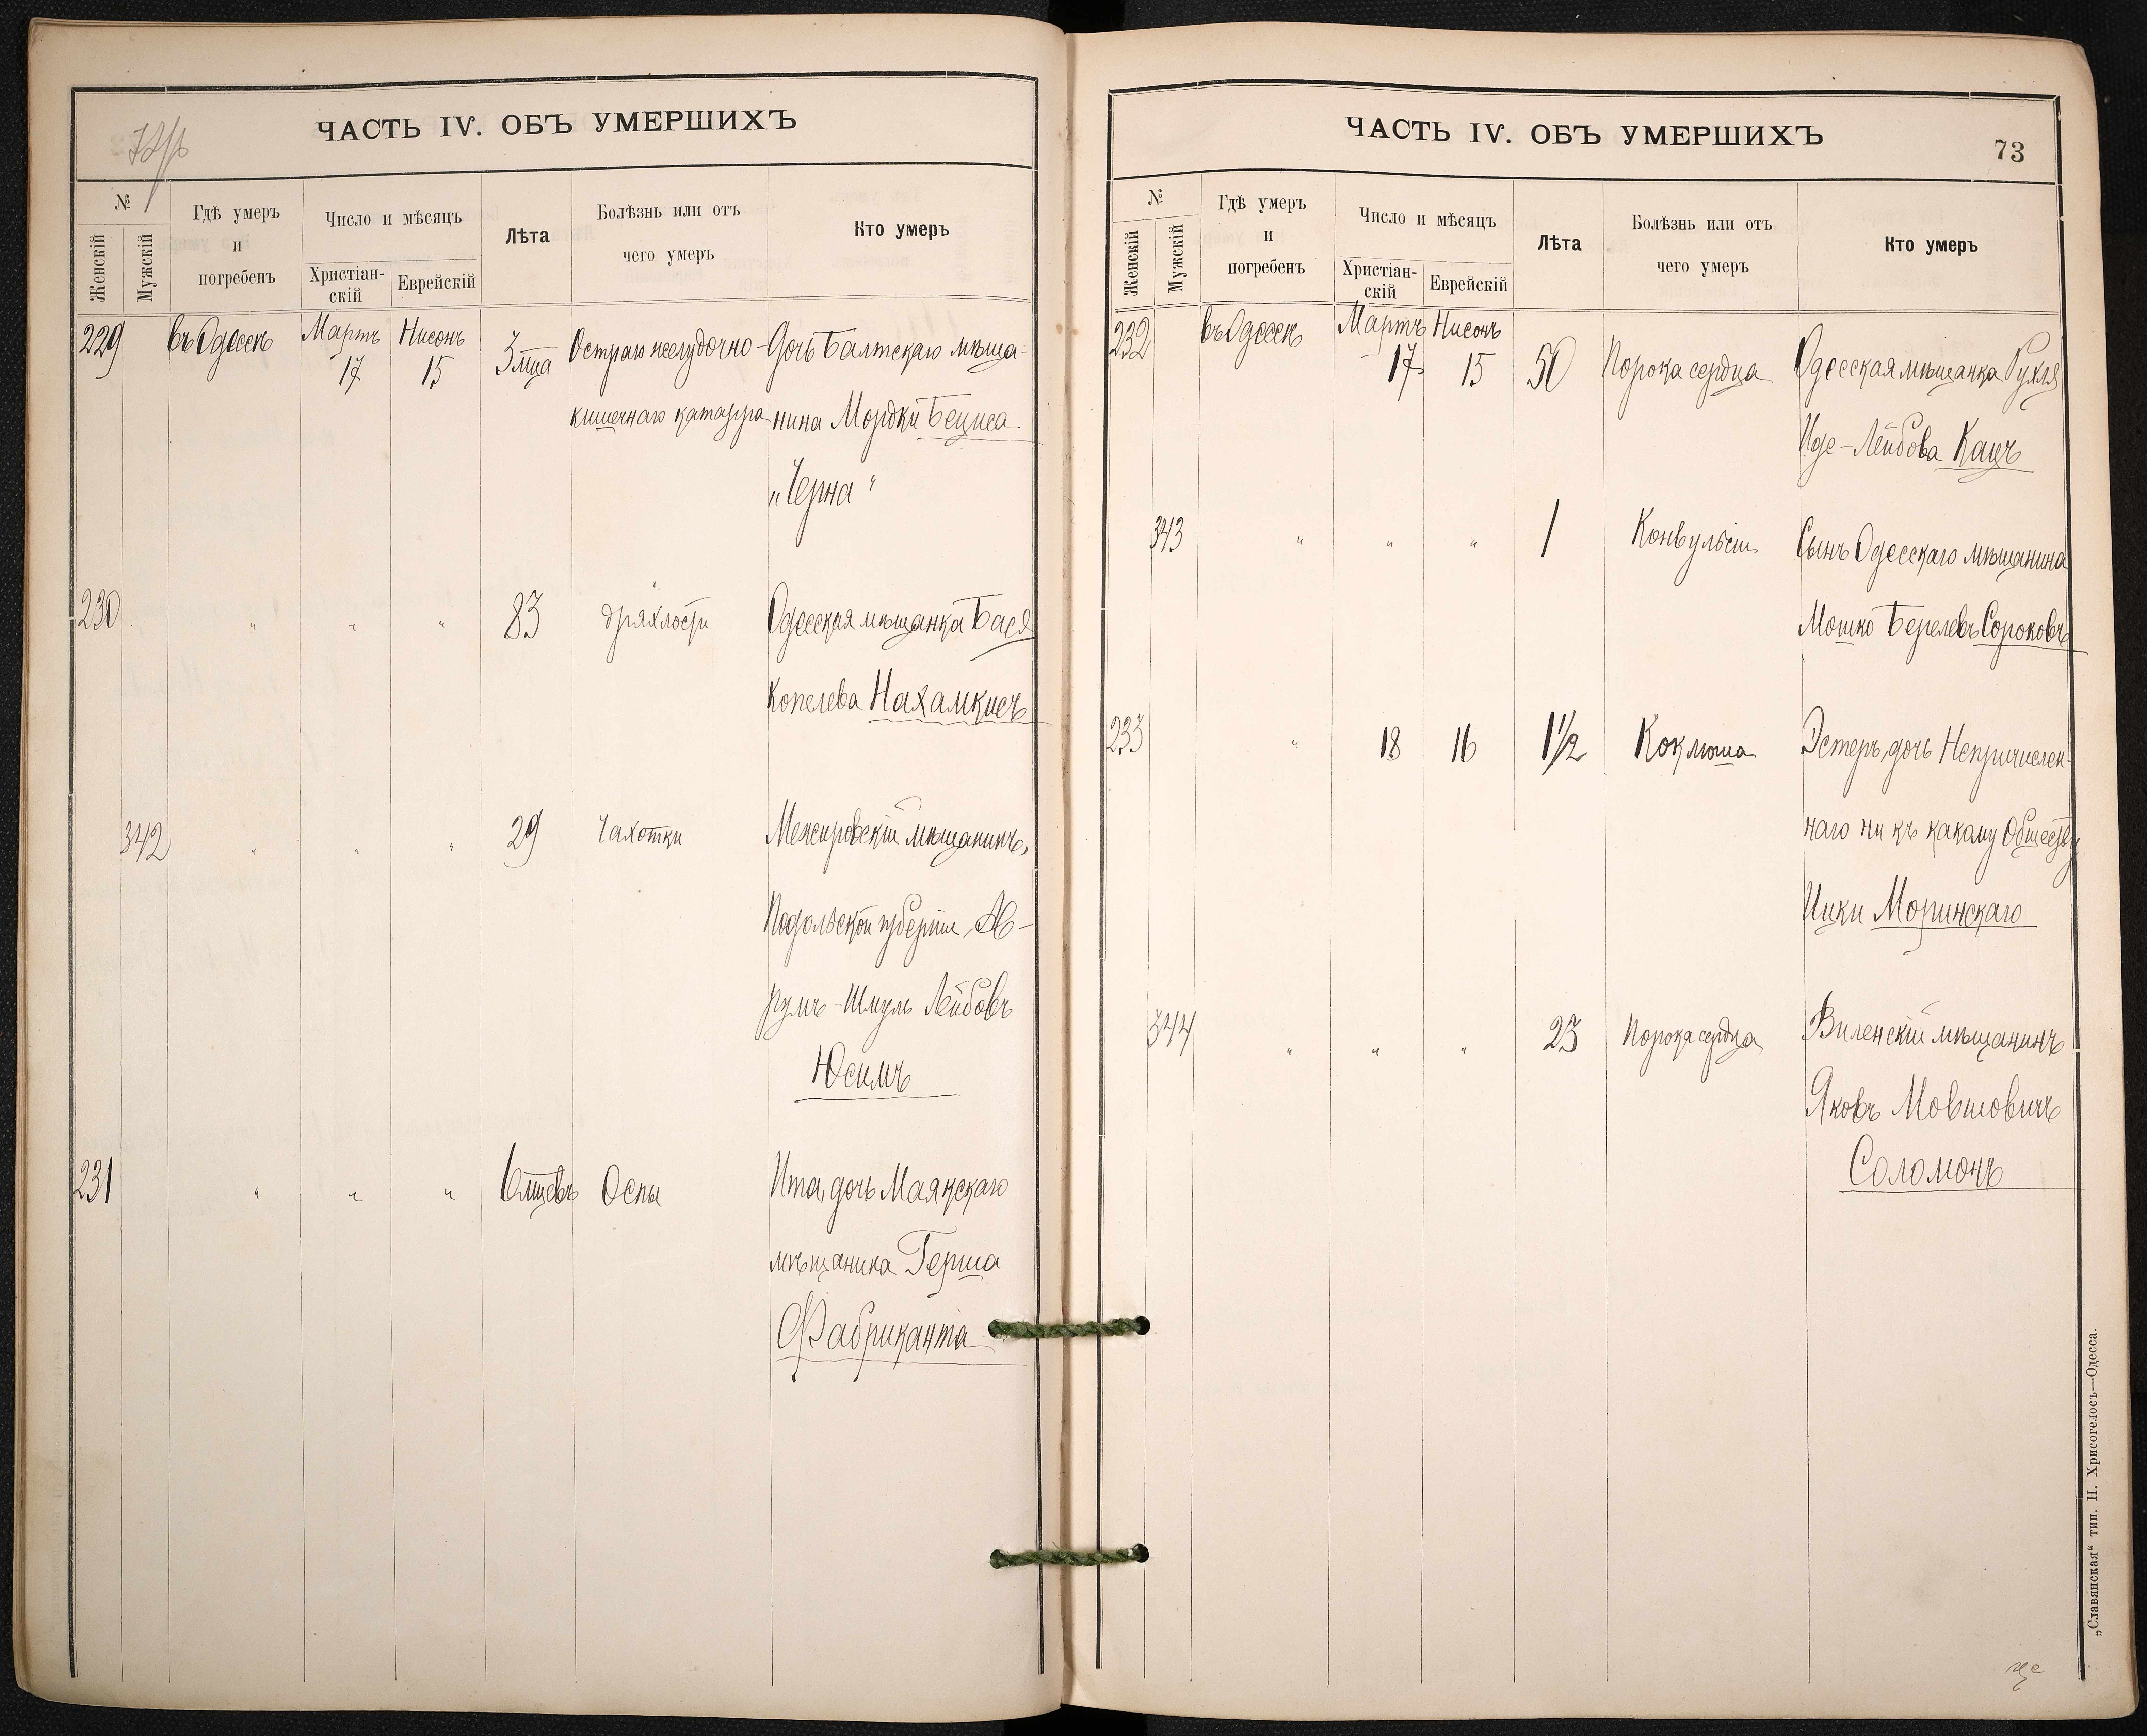 72/б
ЧАСТЬ IV. ОБЪ УМЕРШИХЪ
№
Женскій
Мужскій
Гдѣ умеръ
и
погребенъ
Число и мѣсяцъ
Христіан-
скій
Еврейскій
Лѣта
Болѣзнь или отъ
чего умеръ
Кто умеръ
229 въ Одессѣ Мартъ 17 Нисонъ 15 3 мца Остраго желудочно- Дочь Балтскаго мѣща-
кишечнаго катарра нина Мордки Бециса
„Черна“
230 " " " 83 дряхлости Одесская мѣщанка Бася
Копелева Нахамкисъ
342 " " " 29 Чахотки Межировскій мѣщанинъ,
Подольской губерніи, Аб-
румъ-Шмуль Лейбовъ
Юсимъ
231 " " " 6 мцевъ Оспы Ита, дочь Маякскаго
мѣщанина Герша
Фабриканта
ЧАСТЬ IV. ОБЪ УМЕРШИХЪ
73
№
Женскій
Мужскій
Гдѣ умеръ
и
погребенъ
Число и мѣсяцъ
Христіан-
скій
Еврейскій
Лѣта
Болѣзнь или отъ
чего умеръ
Кто умеръ
232 въ Одессѣ Мартъ 17 Нисонъ 15 50 Порока сердца Одесская мѣщанка Рухля
Иде-Лейбова Кацъ
343 " " " 1 Конвульсіи Сынъ Одесскаго мѣщанина
Мошко Берелевъ Сороковъ
233 " 18 16 1½ Коклюша Эстеръ, дочь Непричислен-
наго ни къ какому Обществу
Ицки Моринскаго
344 " " " 23 Порока сердца Виленскій мѣщанинъ
Яковъ Мовшовичъ
Соломонъ
„Славянская“ тип. Н. Хрисогелосъ—Одесса.